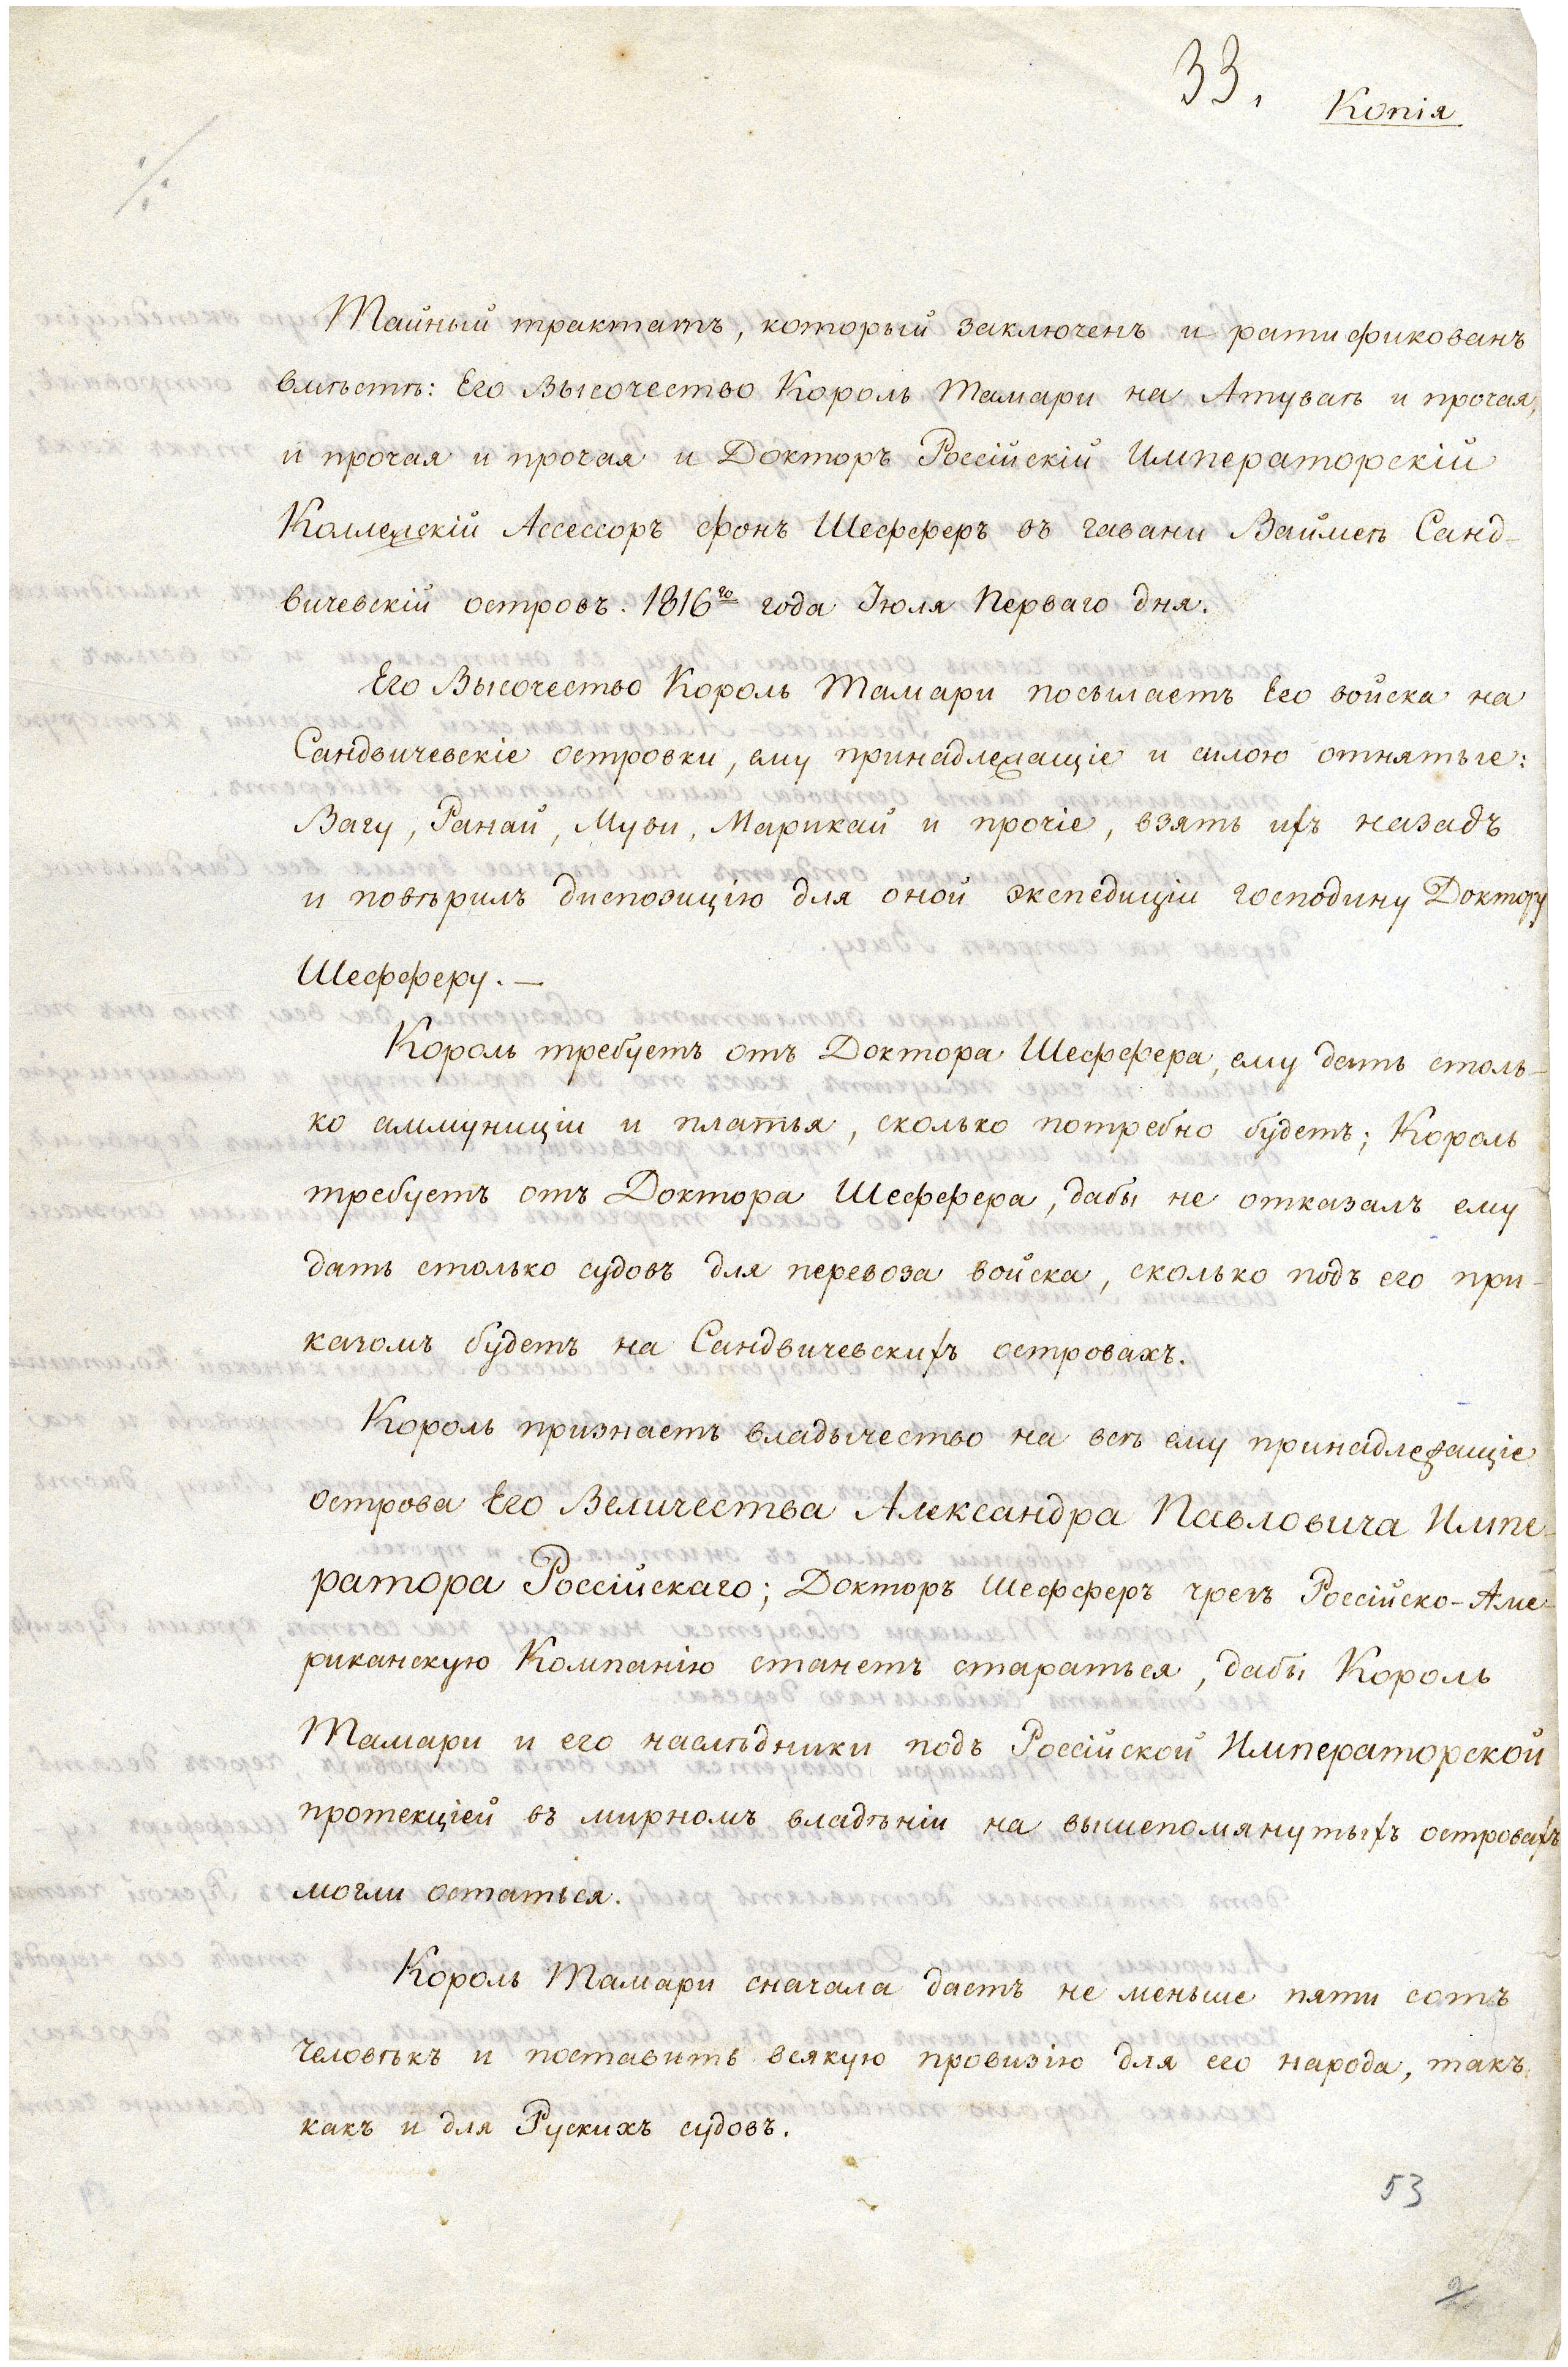 33.
Копія
Тайный трактатъ, который заключенъ и ратификованъ
вмѣстѣ: Его Высочество Король Тамари на Атуваѣ и прочая,
и прочая и прочая и Докторъ Россійскій Императорскій
Коллежскій Ассессоръ фонъ Шеффферъ въ гавани Ваймеѣ Санд-
вичевскій островъ. 1816го года Іюля Перваго дня.
Его Высочество Король Тамари посылаетъ Его войска на
Сандвичевскіе островки, ему принадлежащіе и силою отнятые:
Вагу, Ранай, Муви, Марикай и прочіе, взять ихъ назадъ
и повѣрилъ диспозицію для оной экспедиціи господину Доктору
Шефферу. —
Король требуетъ отъ Доктора Шеффера, ему дать столь-
ко аммуниціи и платья, сколько потребно будетъ; Король
требуетъ отъ Доктора Шеффера, дабы не отказалъ ему
дать столько судовъ для перевоза войска, сколько подъ его при-
казомъ будетъ на Сандвичевскихъ островахъ.
Король признаетъ владычество на всѣ ему принадлежащіе
острова Его Величества Александра Павловича Импе-
ратора Россійскаго; Докторъ Шефферъ чрезъ Россійско-Аме-
риканскую Компанію станетъ стараться, дабы Король
Тамари и его наслѣдники подъ Россійской Императорской
протекціей въ мирномъ владѣніи на вышепомянутыхъ островахъ
могли остаться.
Король Тамари сначала дастъ не меньше пяти сотъ
человѣкъ и поставитъ всякую провизію для его народа, такъ
какъ и для Рускихъ судовъ.
53